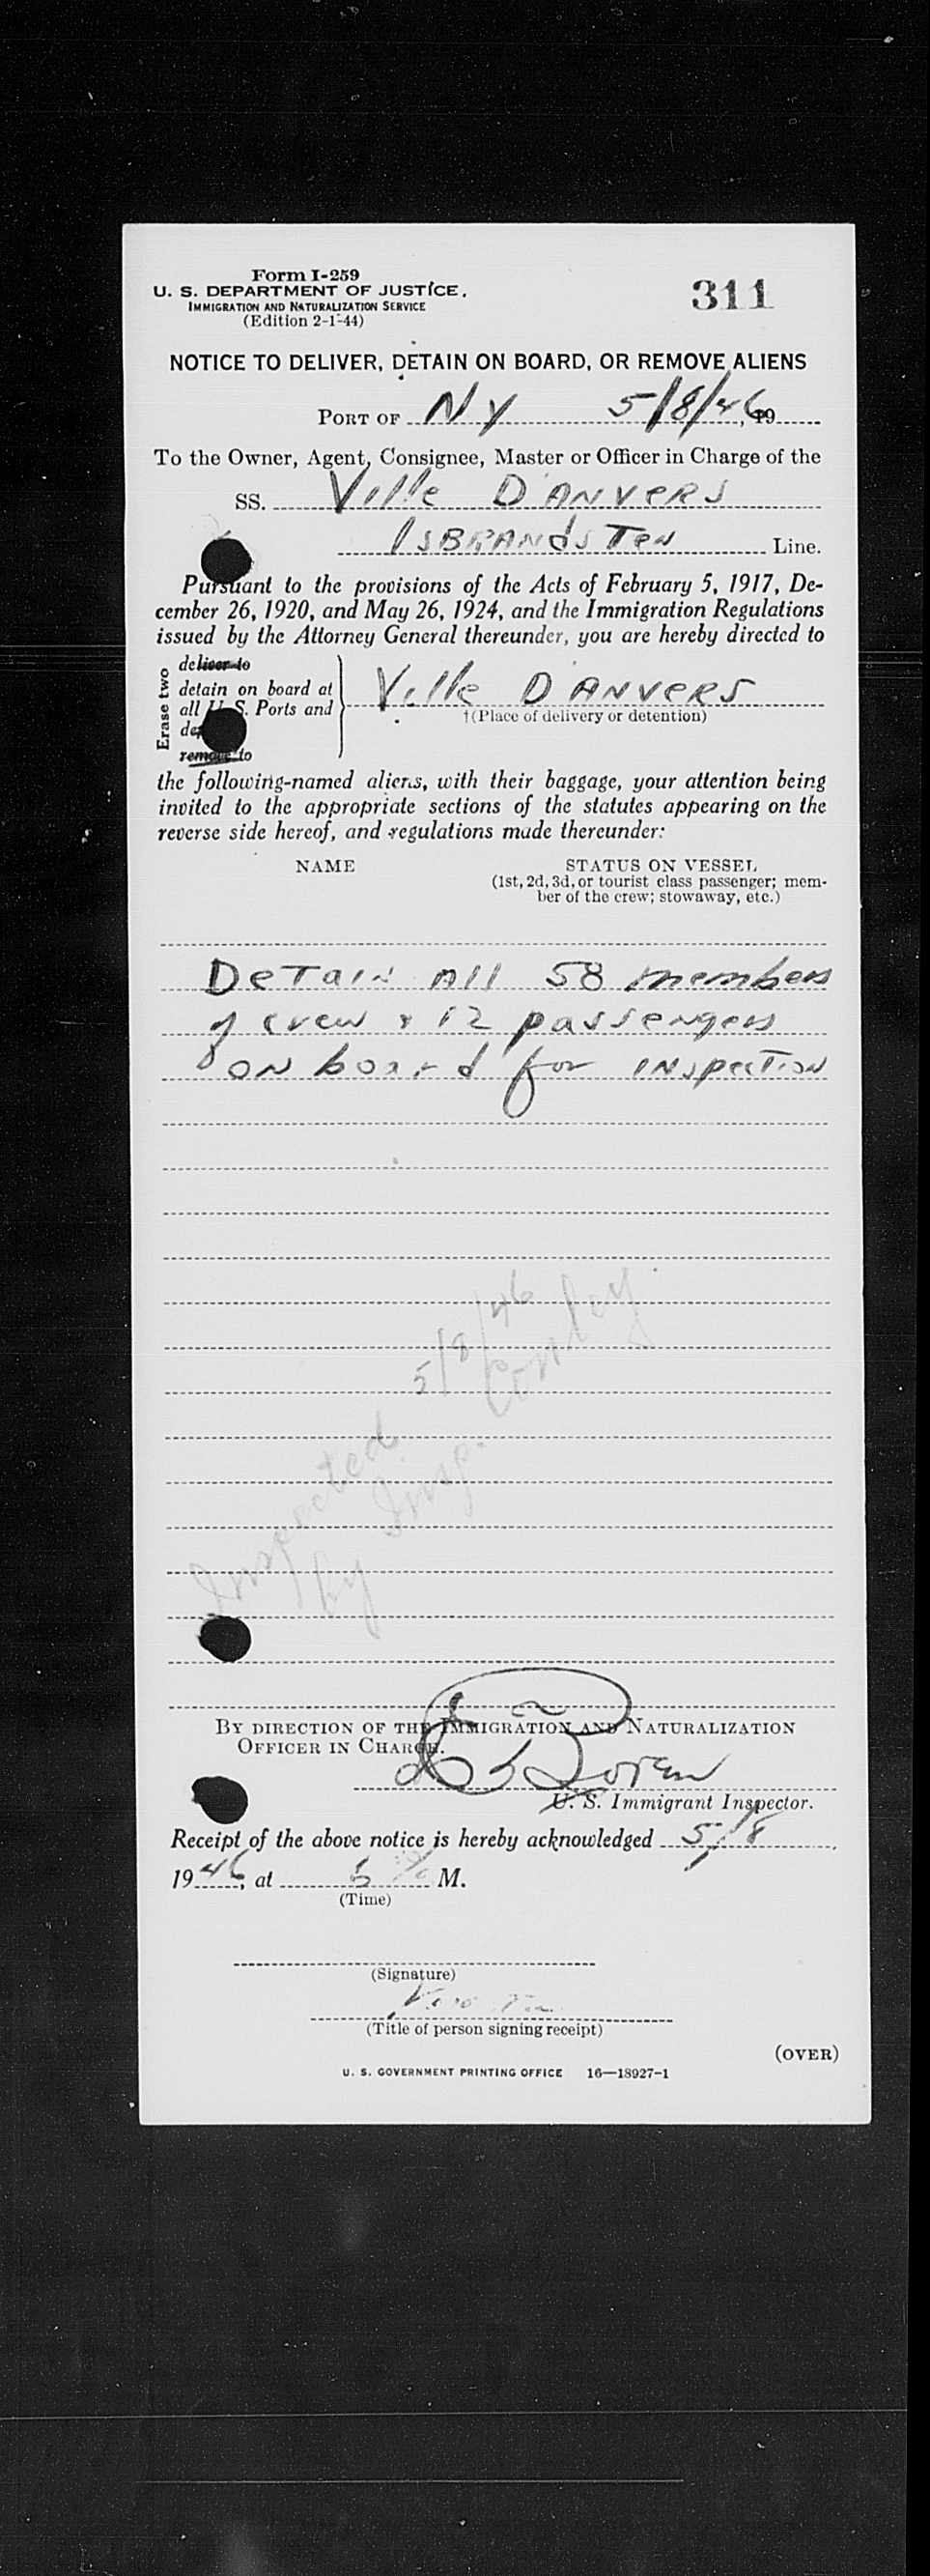 Form I-259
U. S. DEPARTMENT OF JUSTICE,
IMMIGRATION AND NATURALIZATION SERVICE
(Edition 2-1-44)
311
NOTICE TO DELIVER, DETAIN ON BOARD, OR REMOVE ALIENS
PORT OF NY 5/8/46, 19
To the Owner, Agent, Consignee, Master or Officer in Charge of the
SS. Ville D'ANVERS
ISBRANdSTeN Line.
Pursuant to the provisions of the Acts of February 5, 1917, De-
cember 26, 1920, and May 26, 1924, and the Immigration Regulations
issued by the Attorney General thereunder, you are hereby directed to
Erase two
deliver to
detain on board at
all U. S. Ports and
remove to
Ville D'ANVERS
†(Place of delivery or detention)
the following-named aliens, with their baggage, your attention being
invited to the appropriate sections of the statutes appearing on the
reverse side hereof, and regulations made thereunder:
NAME
STATUS ON VESSEL
(1st, 2d, 3d, or tourist class passenger; mem-
ber of the crew; stowaway, etc.)
DeTain All 58 members
of crew + 12 passengers
ON board for INspecTioN
Inspected 5/8/46
by Insp. Conley
BY DIRECTION OF THE IMMIGRATION AND NATURALIZATION
OFFICER IN CHARGE.
U. S. Immigrant Inspector.
Receipt of the above notice is hereby acknowledged 5/8,
1946, at 5 M.
(Time)
(Signature)
(Title of person signing receipt)
(OVER)
U. S. GOVERNMENT PRINTING OFFICE 16—18927-1